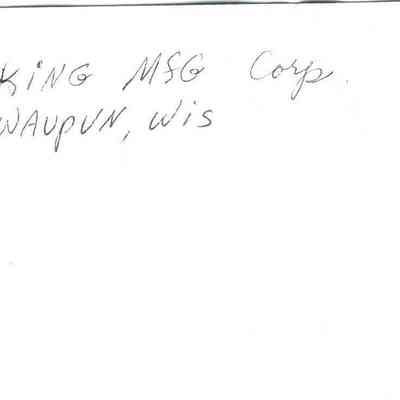 KiNG MfG Corp.
WAUpUN, Wis